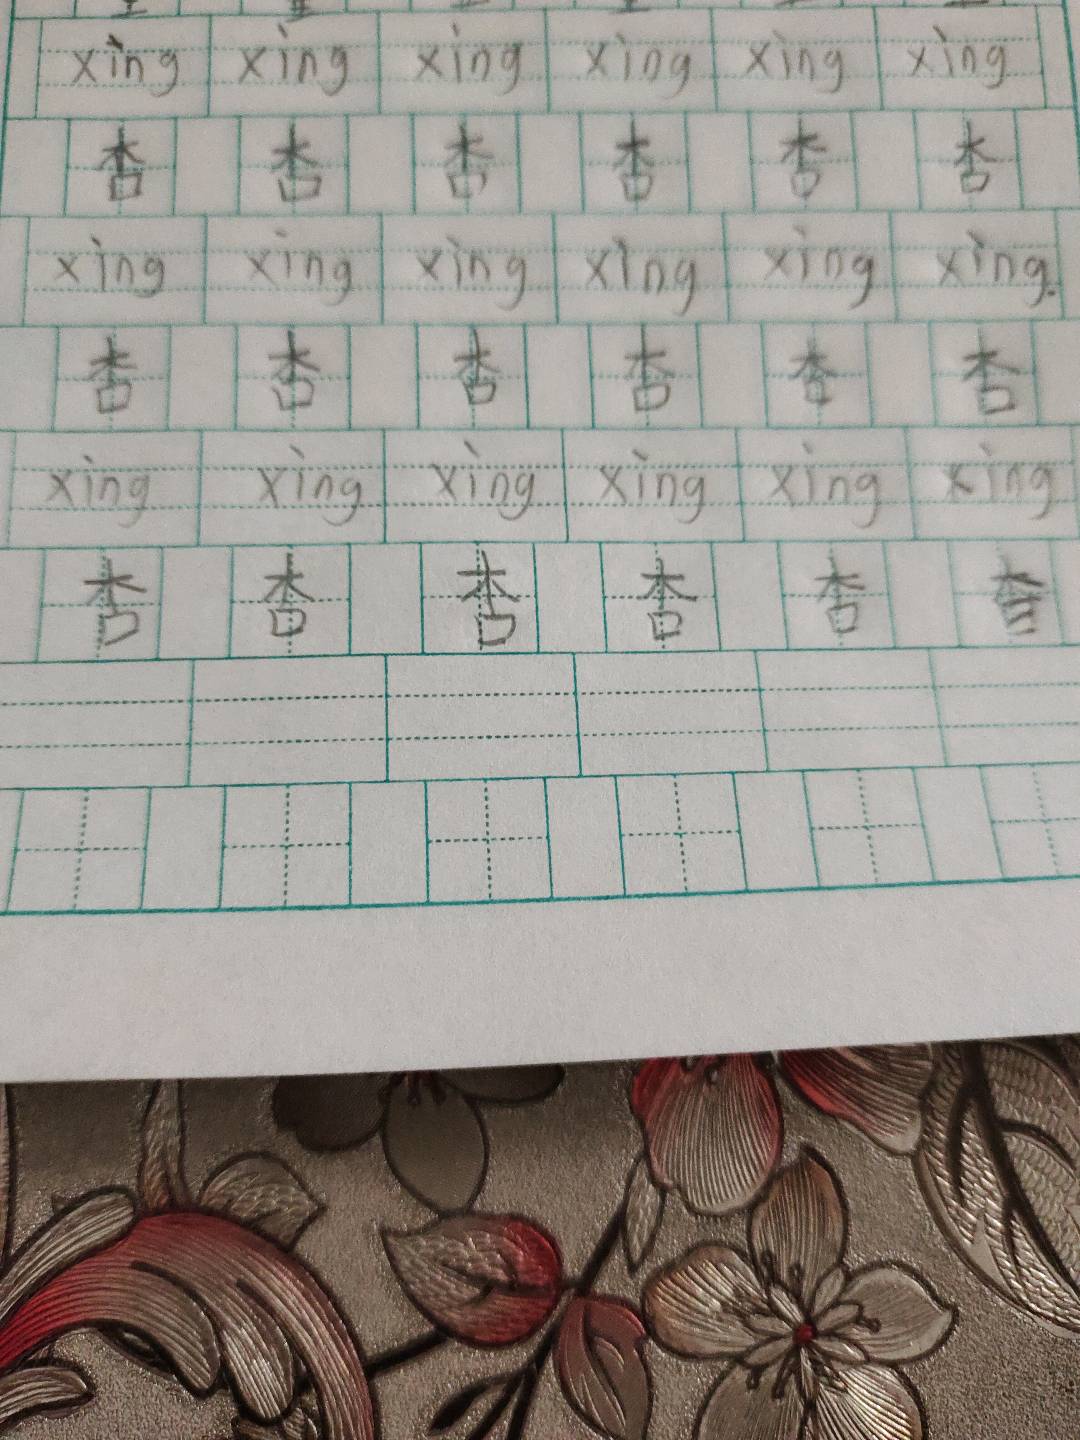 xìng xìng xìng xìng xìng xìng
杏 杏 杏 杏 杏 杏
xìng xìng xìng xìng xìng xìng.
杏 杏 杏 杏 杏 杏
xìng xìng xìng xìng xìng xìng
杏 杏 杏 杏 杏